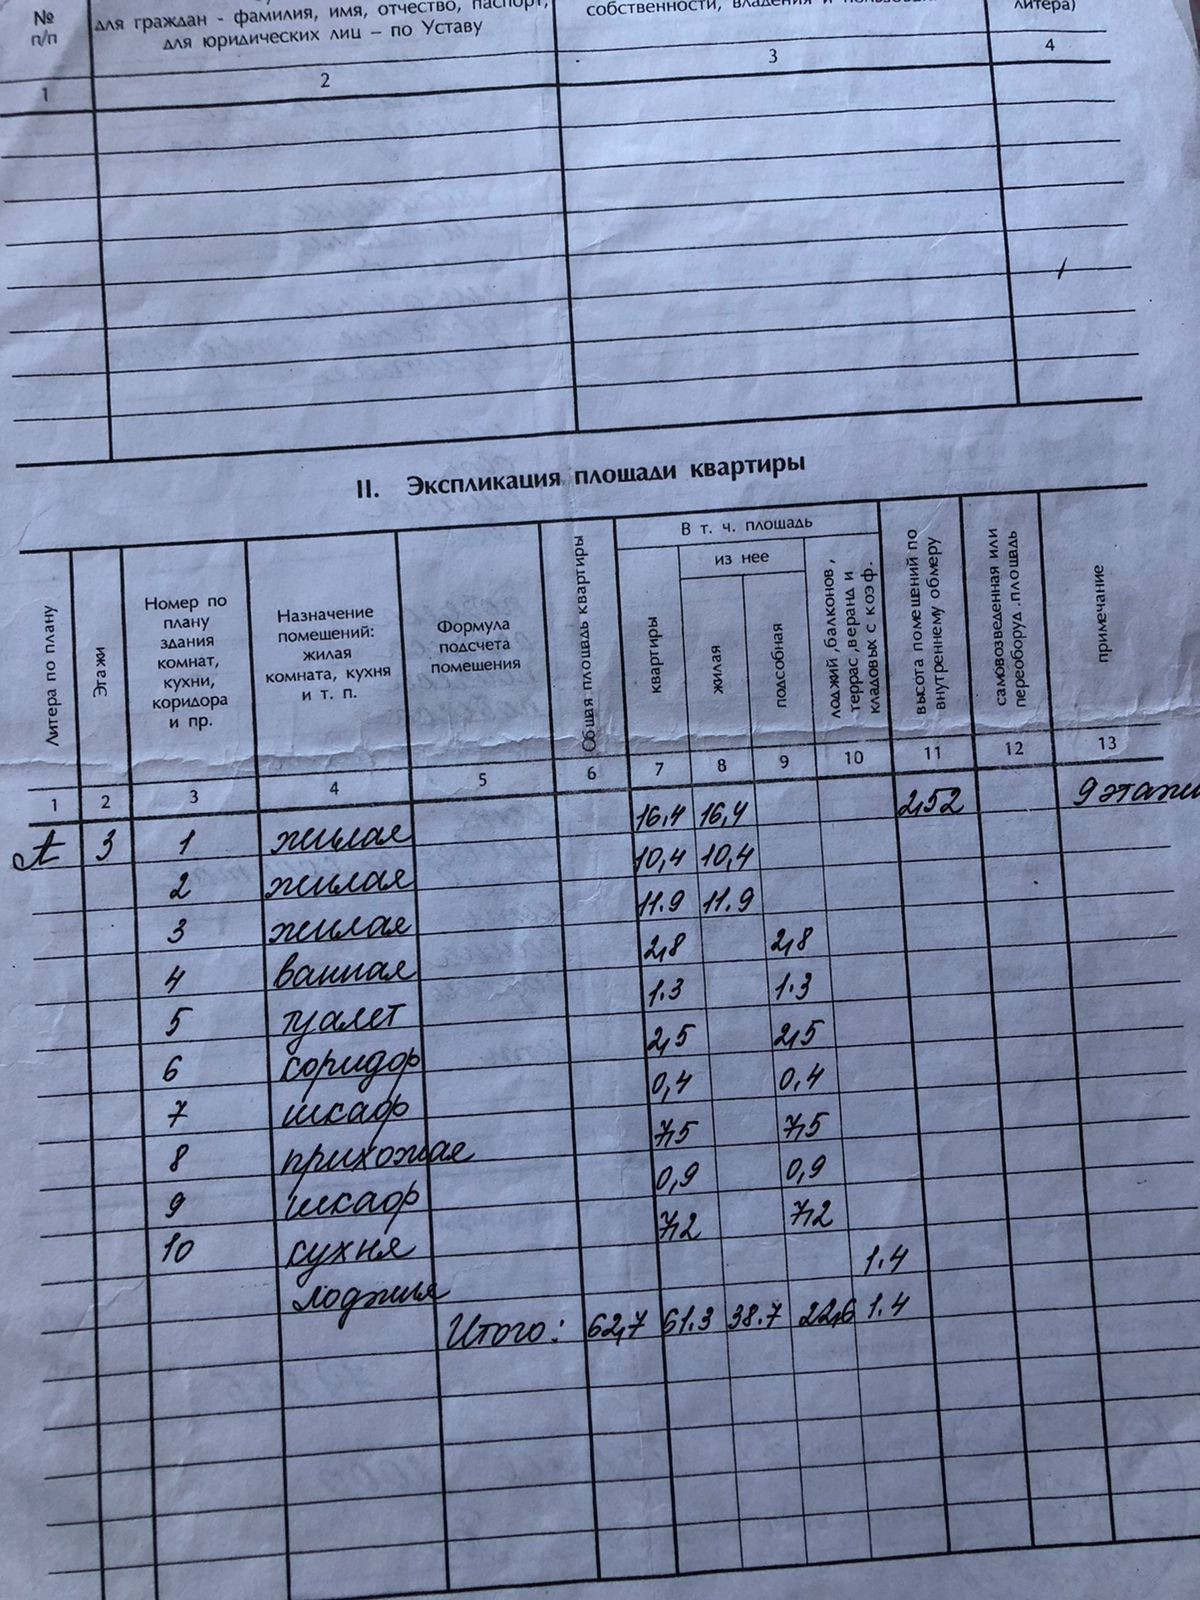 № п/п
для граждан - фамилия, имя, отчество, паспорт,
для юридических лиц – по Уставу
собственности, владения и
литера)
1 2 3 4
II. Экспликация площади квартиры
Литера по плану
Этажи
Номер по
плану
здания
комнат,
кухни,
коридора
и пр.
Назначение
помещений:
жилая
комната, кухня
и т. п.
Формула
подсчета
помещения
Общая площадь квартиры
В т. ч. площадь
квартиры
из нее
жилая
подсобная
лоджий, балконов,
террас, веранд и
кладовых с коэф.
высота помещений по
внутреннему обмеру
самовозведенная или
переоборуд. площадь
примечание
1 2 3 4 5 6 7 8 9 10 11 12 13
А 3 1 жилая 16,4 16,4 2,52 9 этажн
2 жилая 10,4 10,4
3 жилая 11.9 11.9
4 ванная 2,8 2,8
5 туалет 1.3 1.3
6 коридор 2,5 2,5
7 шкаф 0,4 0,4
8 прихожая 7,5 7,5
9 шкаф 0,9 0,9
10 кухня 7,2 7,2
лоджия 1.4
Итого: 62,7 61.3 38.7 22,6 1.4